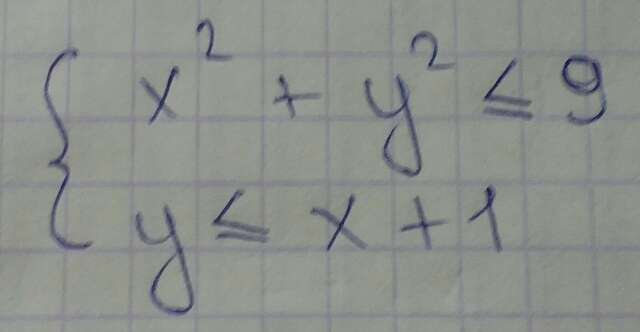 x² + y² ≤ 9
y ≤ x + 1